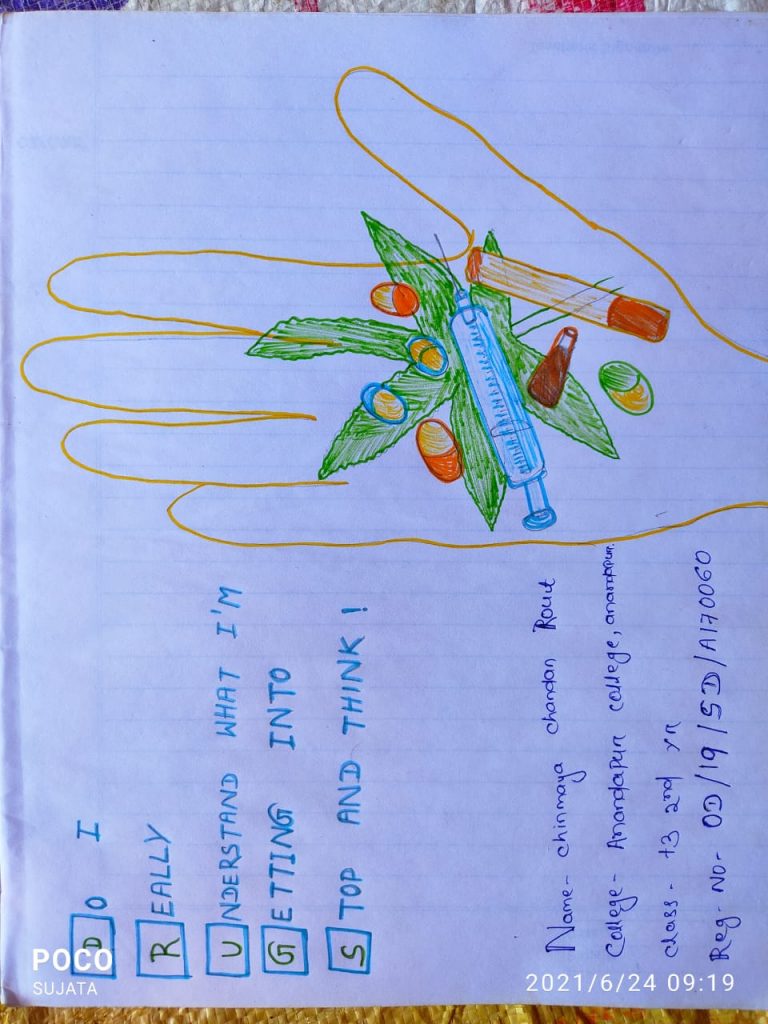 DO I
REALLY
UNDERSTAND WHAT I'M
GETTING INTO
STOP AND THINK !
Name- chinmaya chandan Rout
College- Anandapur college, anandapur.
class- +3 2nd yr
Reg- No- OD/19/SD/A170060
POCO
SUJATA
2021/6/24 09:19